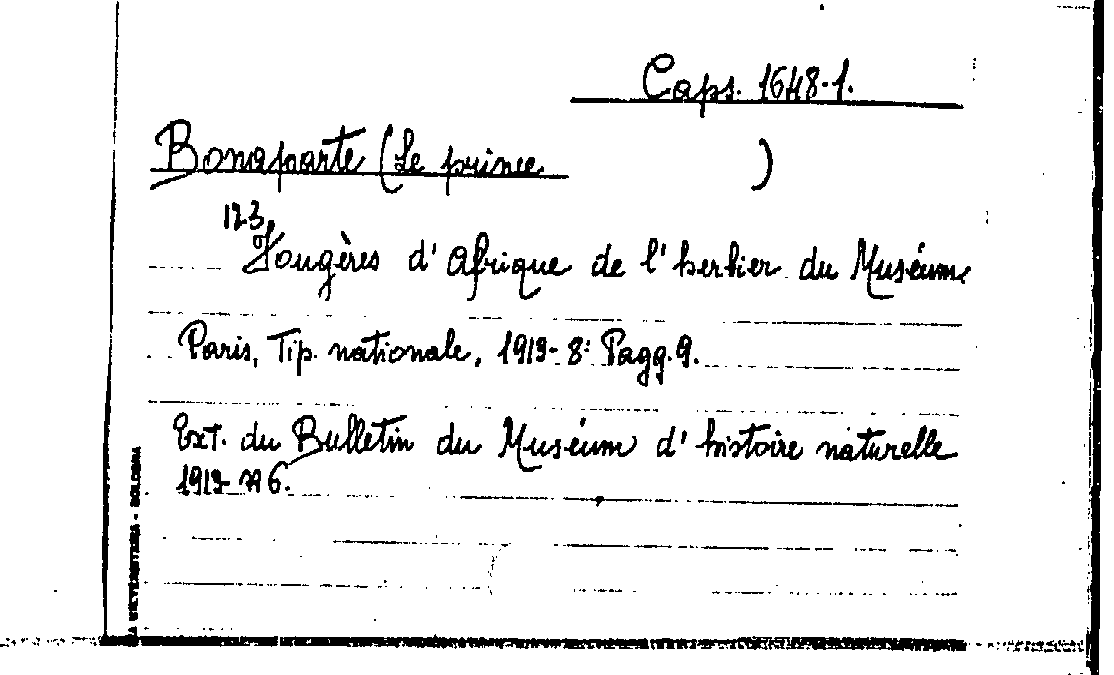 Caps. 1648-1.
Bonaparte (Le prince )
123
Fougères d'Afrique de l'herbier du Muséum
Paris, Tip. nationale, 1913- 8º Pagg. 9.
Ext. du Bulletin du Muséum d'histoire naturelle
1913- n 6.
BOLOGNA